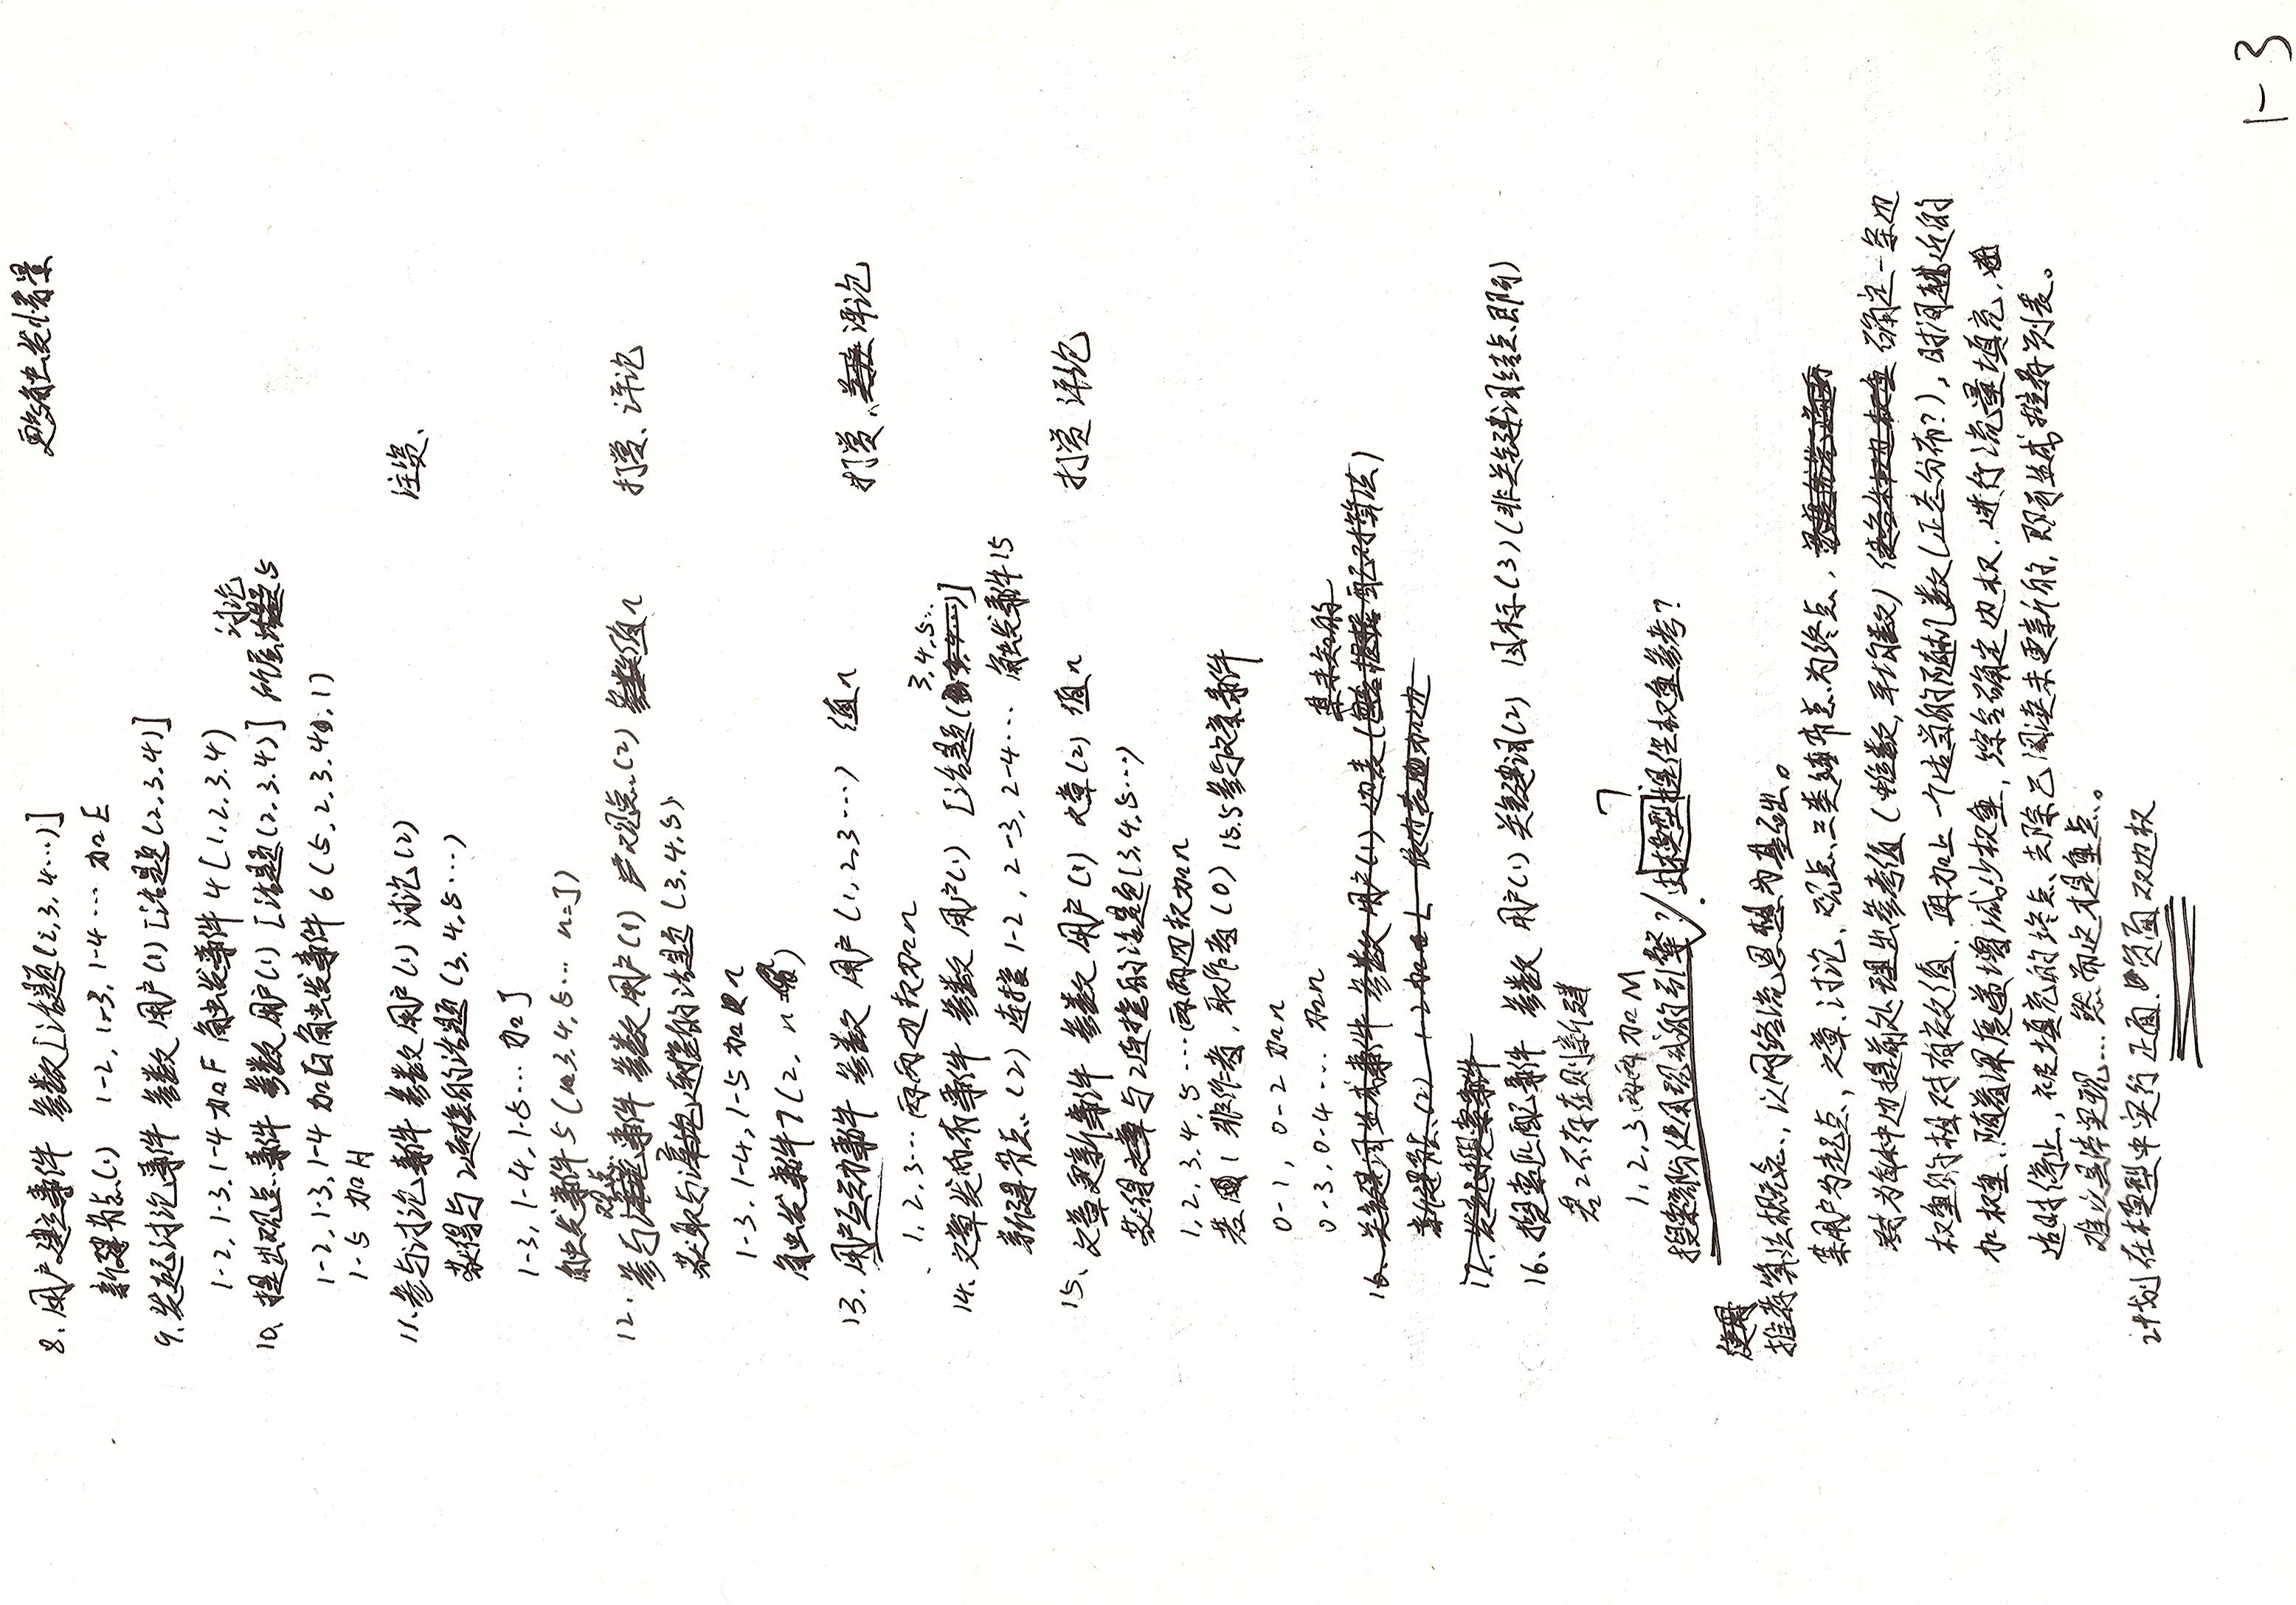 更多触发情景
8. 用户建立事件 参数[话题(2,3,4…)]
新建节点(1) 1-2, 1-3, 1-4 … 加E
9. 发起讨论事件 参数 用户(1) [话题(2,3,4)]
1-2, 1-3, 1-4 加F 触发事件4(1,2,3,4)
讨论
10. 提出观点事件 参数 用户(1) [话题(2,3,4)] 所属 5
1-2, 1-3, 1-4 加G 触发事件6(5,2,3,4,1)
1-5 加H
11. 参与讨论事件 参数 用户(1) 讨论(2) 注资、
获得与2连接的话题(3,4,5…)
1-3, 1-4, 1-5… 加J
触发事件5(3,4,5… n=J)
观点
12. 参与 事件 参数 用户(1) 观点(2) 值n 打赏、评论
获取与2连接的话题(3,4,5)
1-3, 1-4, 1-5 加n
触发事件7(2, n)
13. 用户互动事件 参数 用户(1,2,3…) 值n 打赏、评论
1,2,3… 两两边权加n
3,4,5…
14. 文章发布事件 参数 用户(1) [话题( )]
新建节点(2) 连接1-2, 2-3, 2-4… 触发事件15
15、文章更新事件 参数 用户(1) 文章(2) 值n 打赏 评论
获得 与2连接的话题(3,4,5…)
1,2,3,4,5…两两边权加n
若1非作者,取作者(0) 15.5参与文章事件
0-1, 0-2 加n
0-3, 0-4 … 加n
某未知的
16、关键词生成事件 参数 用户(1) 边表( 配对算法)
新建节点(2) 1-2加L 依边表加边
17、发起搜索事件
16、搜索匹配事件 参数 用户(1) 关键词(2) 目标(3)(非关键词结点即可)
若2不存在则新建
1,2,3两两加M
搜索部分使用现成的引擎?/由模型提供权重参考?
使用
推荐算法概念,以网络流思想为基础。
某用户为起点,文章、讨论、观点三类节点为终点,
为每种边提前处理出参考值(中位数,平均数) 确定一条边
权重的相对有效值,再加上一个适当的随机数(正态分布?),时间越近的
加权重、随着深度递增减少权重,综合确定边权,进行流量填充,
适时停止,被填充的终点、去除已阅读未更新的,即可生成推荐列表。
难以具体实现…然而这才是重点。
计划在模型中实行正面、负面双边权
1-3